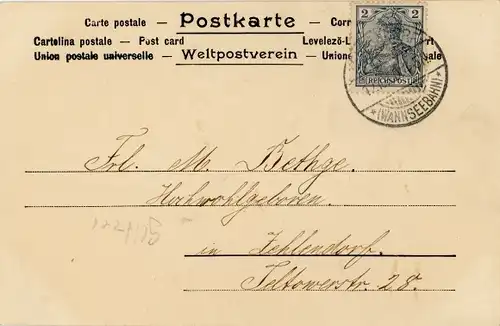 Carte postale — Postkarte — Corr
Cartolina postale — Post card Levelező-L rt
Union postale universelle — Weltpostverein — Union sale
2
REICHSPOST
*(WANNSEEBAHN)*
Frl. M. Bethge.
Hochwohlgeboren.
in Zehlendorf.
Teltowerstr. 28.